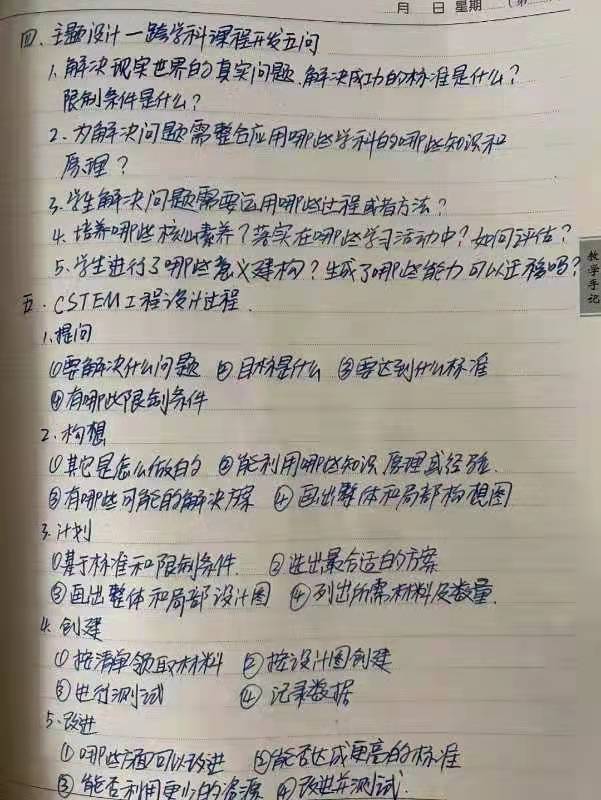 月 日 星期 （第
四、主题设计—跨学科课程开发五问
1、解决现实世界的真实问题、解决成功的标准是什么？
限制条件是什么？
2、为解决问题需整合应用哪些学科的哪些知识和
原理？
3、学生解决问题需要运用哪些过程或者方法？
4、培养哪些核心素养？落实在哪些学习活动中？如何评估？
5、学生进行了哪些意义建构？生成了哪些能力可以迁移吗？
教学手记
五、CSTEM工程设计过程、
1、提问
①要解决什么问题 ②目标是什么 ③要达到什么标准
④有哪些限制条件
2、构想
①其它是怎么做的 ②能利用哪些知识、原理或经验、
③有哪些可能的解决方案 ④画出整体和局部构想图
3、计划
①基于标准和限制条件、 ②选出最合适的方案
③画出整体和局部设计图 ④列出所需材料及数量、
4、创建
①按清单领取材料 ②按设计图创建
③进行测试 ④记录数据
5、改进
①哪些方面可以改进 ②能否达成更高的标准
③能否利用更少的资源 ④改进并测试、